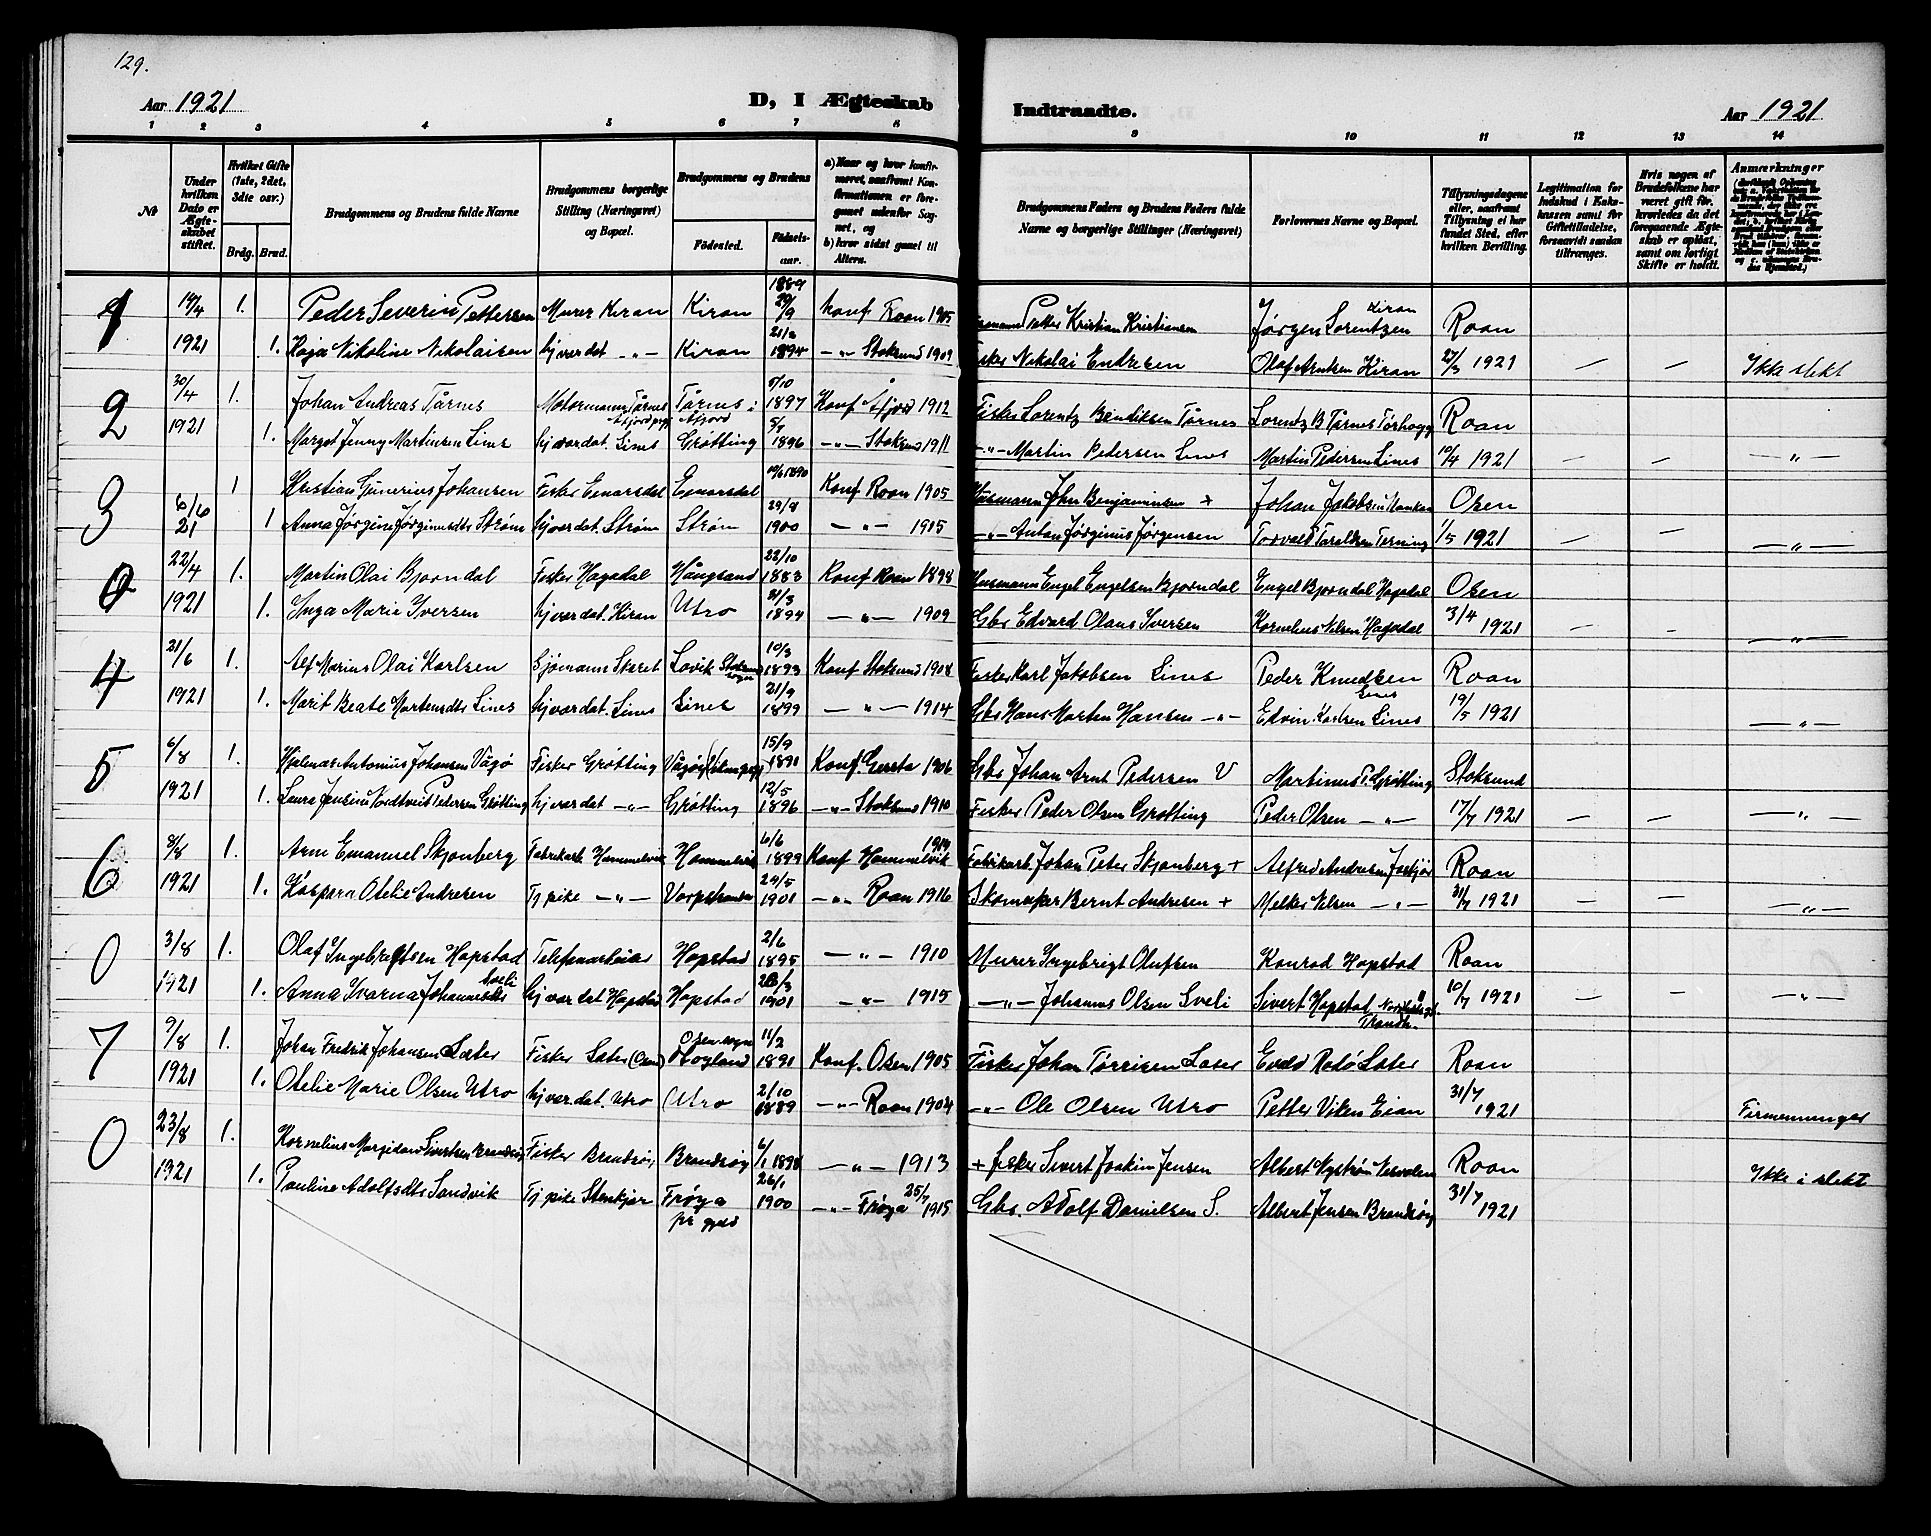 129.
Aar 1921 D, I Ægteskab Indtraadte. Aar 1921
1 2 3 4 5 6 7 8 9 10 11 12 13 14
Nt
Under hvilken Dato er Ægteskabet stiftet.
Hvilket Gifte (1ste, 2det, 3die osv.)
Brdg. Brud.
Brudgommens og Brudens fulde Navne
Brudgommens borgerlige Stilling (Næringsvei) og Bopæl.
Brudgommens og Brudens
Födested. Födselsaar.
a) Naar og hvor konfirmeret, saafremt Konfirmationen er foregaaet udenfor Sognet, og
b) hvor sidst gaaet til Alters.
Brudgommens Faders og Brudens Faders fulde Navne og borgerlige Stillinger (Næringsvei)
Forlovernes Navne og Bopæl.
Tillysningsdagene eller, saafremt Tillysning ei har fundet Sted, efter hvilken Bevilling.
Legitimation for Indskud i Enkekassen samt for Giftetilladelse, forsaavidt saadan tiltrænges.
Hvis nogen af Brudefolkene har været gift för, hvorledes da det foregaaende Ægteskab er oplöst, samt om lovligt Skifte er holdt.
Anmærkninger
1 19/4 1. Peder Severin Pettersen Murer Kiran Kiran 1889 29/9 Konf Roan 1905 Petter Kristian Kristiansen Jørgen Lorentzen Kiran Roan
1921 1. Kaja Nikoline Nikolaisen hj.vær det -"- Kiran 1894 -"- Stoksund 1909 Fisker Nikolai Endresen Olaf Arntsen Kiran 27/3 1921 — — Ikke slekt
2 30/4 1. Johan Andreas Tårnes Motormann Tårnes Tårnes i Åfjord 5/10 1897 Konf Åfjord 1912 Fisker Lorentz Bendiksen Tårnes Lorentz B Tårnes Roan
1921 1. Margot Jenny Martinsen Lines hj.vær dat. Lines Grøtting 1896 -"- Stoksund 1911 -"- Martin Pedersen Lines Martin Pedersen Lines 10/4 1921 — — -"-
3 6/6 1 Kristian Gunerius Johansen Fisker Einarsdal Einarsdal 1890 Konf Roan 1905 Husmann John Benjaminsen + Johan Jakobsen Osen
21 1 Anna Jørgine Jørginusdt Strøm hj.vær dat. Strøm Strøm 29/8 1900 -"- 1915 -"- Anton Jørginus Jørgensen Torvald 1/5 1921 — — -"-
0 22/4 1. Martin Olai Bjørndal Fisker Hagedal Hångsand 22/10 1883 Konf Roan 1898 Husmann Engel Engelsen Bjørndal Engel Bjørndal Hagedal Osen
1921 1. Inga Marie Iversen hj.vær dat. Kiran Utro 31/3 1894 -"- 1909 Gbr Edvard Olaus Iversen Kornelius Nilsen Hagedal 3/4 1921 — — -"-
4 21/6 1. Alf Marius Olai Karlsen Sjømann Skaret Lovik Stoksund sogn 10/3 1893 Konf Stoksund 1908 Fisker Karl Jakobsen Lines Peder Knudsen Lines Roan
1921 1. Marit Beate Martensdt Lines hj.vær dat. Lines Lines 21/9 1899 -"- 1914 Gbr Hans Morten Hansen -"- Edvin Karlsen Lines 19/5 1921 -"-
5 6/8 1. Hjalmar Antonius Johansen Vågø Fisker Grøtting Vågøy 15/9 1891 Konf. 1906 Gbr Johan Arnt Pedersen V Martinus P. Grøtting Stoksund
1921 1. Laura Jensine Nordtveit Pedersen Grøtting hj.vær det -"- Grøtting 12/5 1896 -"- Stoksund 1910 Fisker Peder Olsen Grøtting Peder Olsen -"- 17/7 1921 — — -"-
6 8/8 1. Arne Emanuel Skjønberg Fabrikarb Hommelvik Hommelvik 6/6 1899 Konf Hommelvik Fabrikarb. Johan Peter Skjønberg + Alfred Andresen Roan
1921 1. Kaspara Otelie Andresen Tj pike -"- 29/5 1901 -"- Roan 1916 Skomaker Bernt Andresen + Melker Nilsen -"- 31/7 1921 — — -"-
0 3/8 1. Olaf Ingebrektsen Hopstad Telefonarbeider Hopstad 2/6 1895 -"- 1910 Murer Ingebrigt Olufsen Konrad Hopstad Roan
1921 1. Anna Ivarna Johannesdt Sveli hj.vær det Hopstad Hopstad 1901 -"- 1915 -"- Johannes Olsen Sveli Sivert Hopstad 10/7 1921 — — -"-
7 9/8 1. Johan Fredrik Johansen Sæter Fisker Sæter (Osen) Osen sogn Hogland 11/2 1891 Konf. Osen 1905 Fisker Johan Tørrisen Sæter Roan
1921 1. Otelie Marie Olsen Utro hj.vær.det. Utro Utro 2/10 1889 -"- Roan 1904 -"- Ole Olsen Utro Petter Viken Eian 31/7 1921 Firmenninger
0 23/8 1. Kornelius Margidon Sivertsen Brandsøy Fisker Brandsøy Brandsøy 6/1 1898 -"- 1913 + fisker Sivert Joakim Jensen Albert Nystrøm Roan
1921 1. Pauline Adolfsdt Sandvik Tj pike Stenkjær Frøya pr.gjeld 26/1 1900 -"- Frøya 25/7 1915 Gbr. Adolf Danielsen S. Albert Jensen Brandsøy 31/7 1921 Ikke i slekt